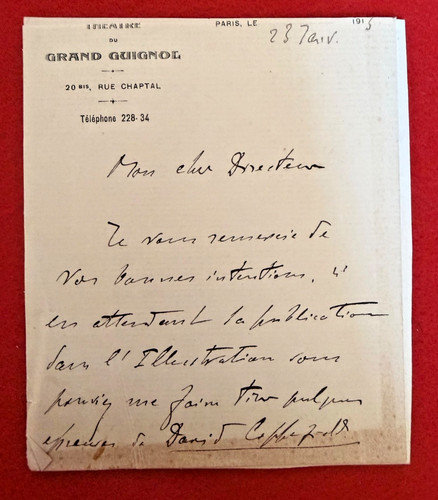 THEATRE
DU
GRAND GUIGNOL
20 BIS, RUE CHAPTAL
Téléphone 228-34
PARIS, LE 23 Janv. 1913
Mon cher Directeur
Je vous remercie de
vos bonnes intentions, si
en attendant la publication
dans l'Illustration vous
pouviez me faire tirer quelques
épreuves de David Copperfield